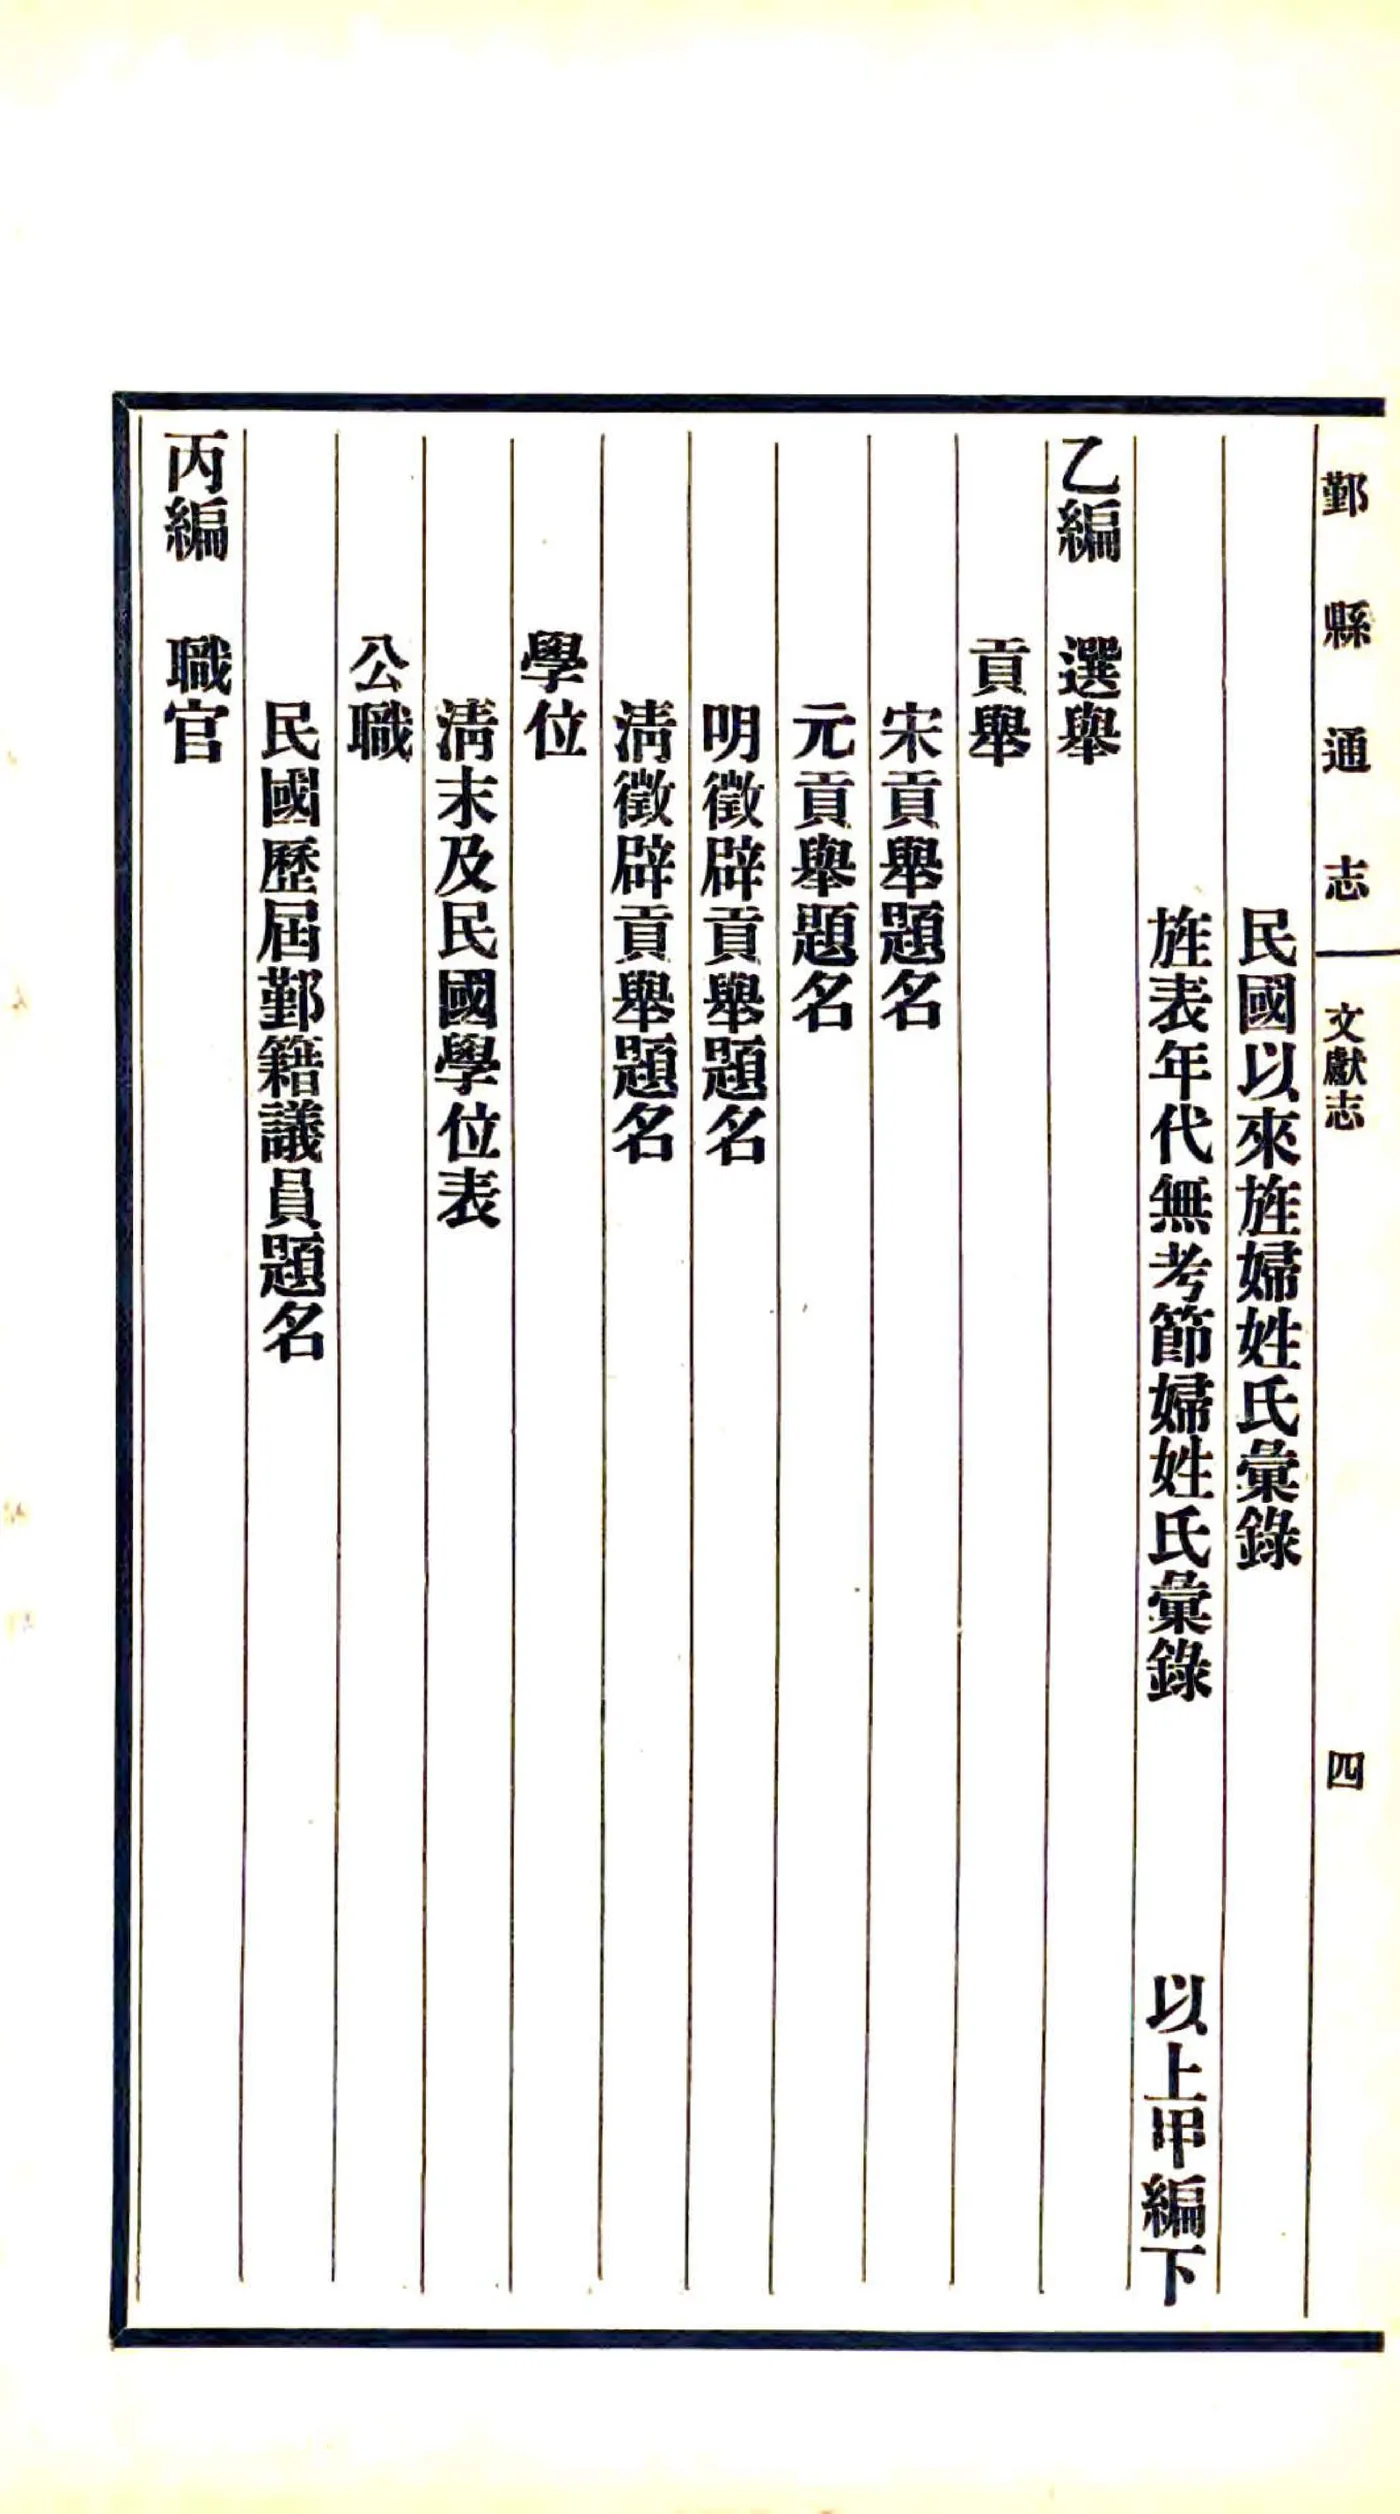 鄞縣通志 文獻志 四
民國以來旌婦姓氏彙錄
旌表年代無考節婦姓氏彙錄 以上甲編下
乙編 選舉
貢舉
宋貢舉題名
元貢舉題名
明徵辟貢舉題名
清徵辟貢舉題名
學位
清末及民國學位表
公職
民國歷屆鄞籍議員題名
丙編 職官